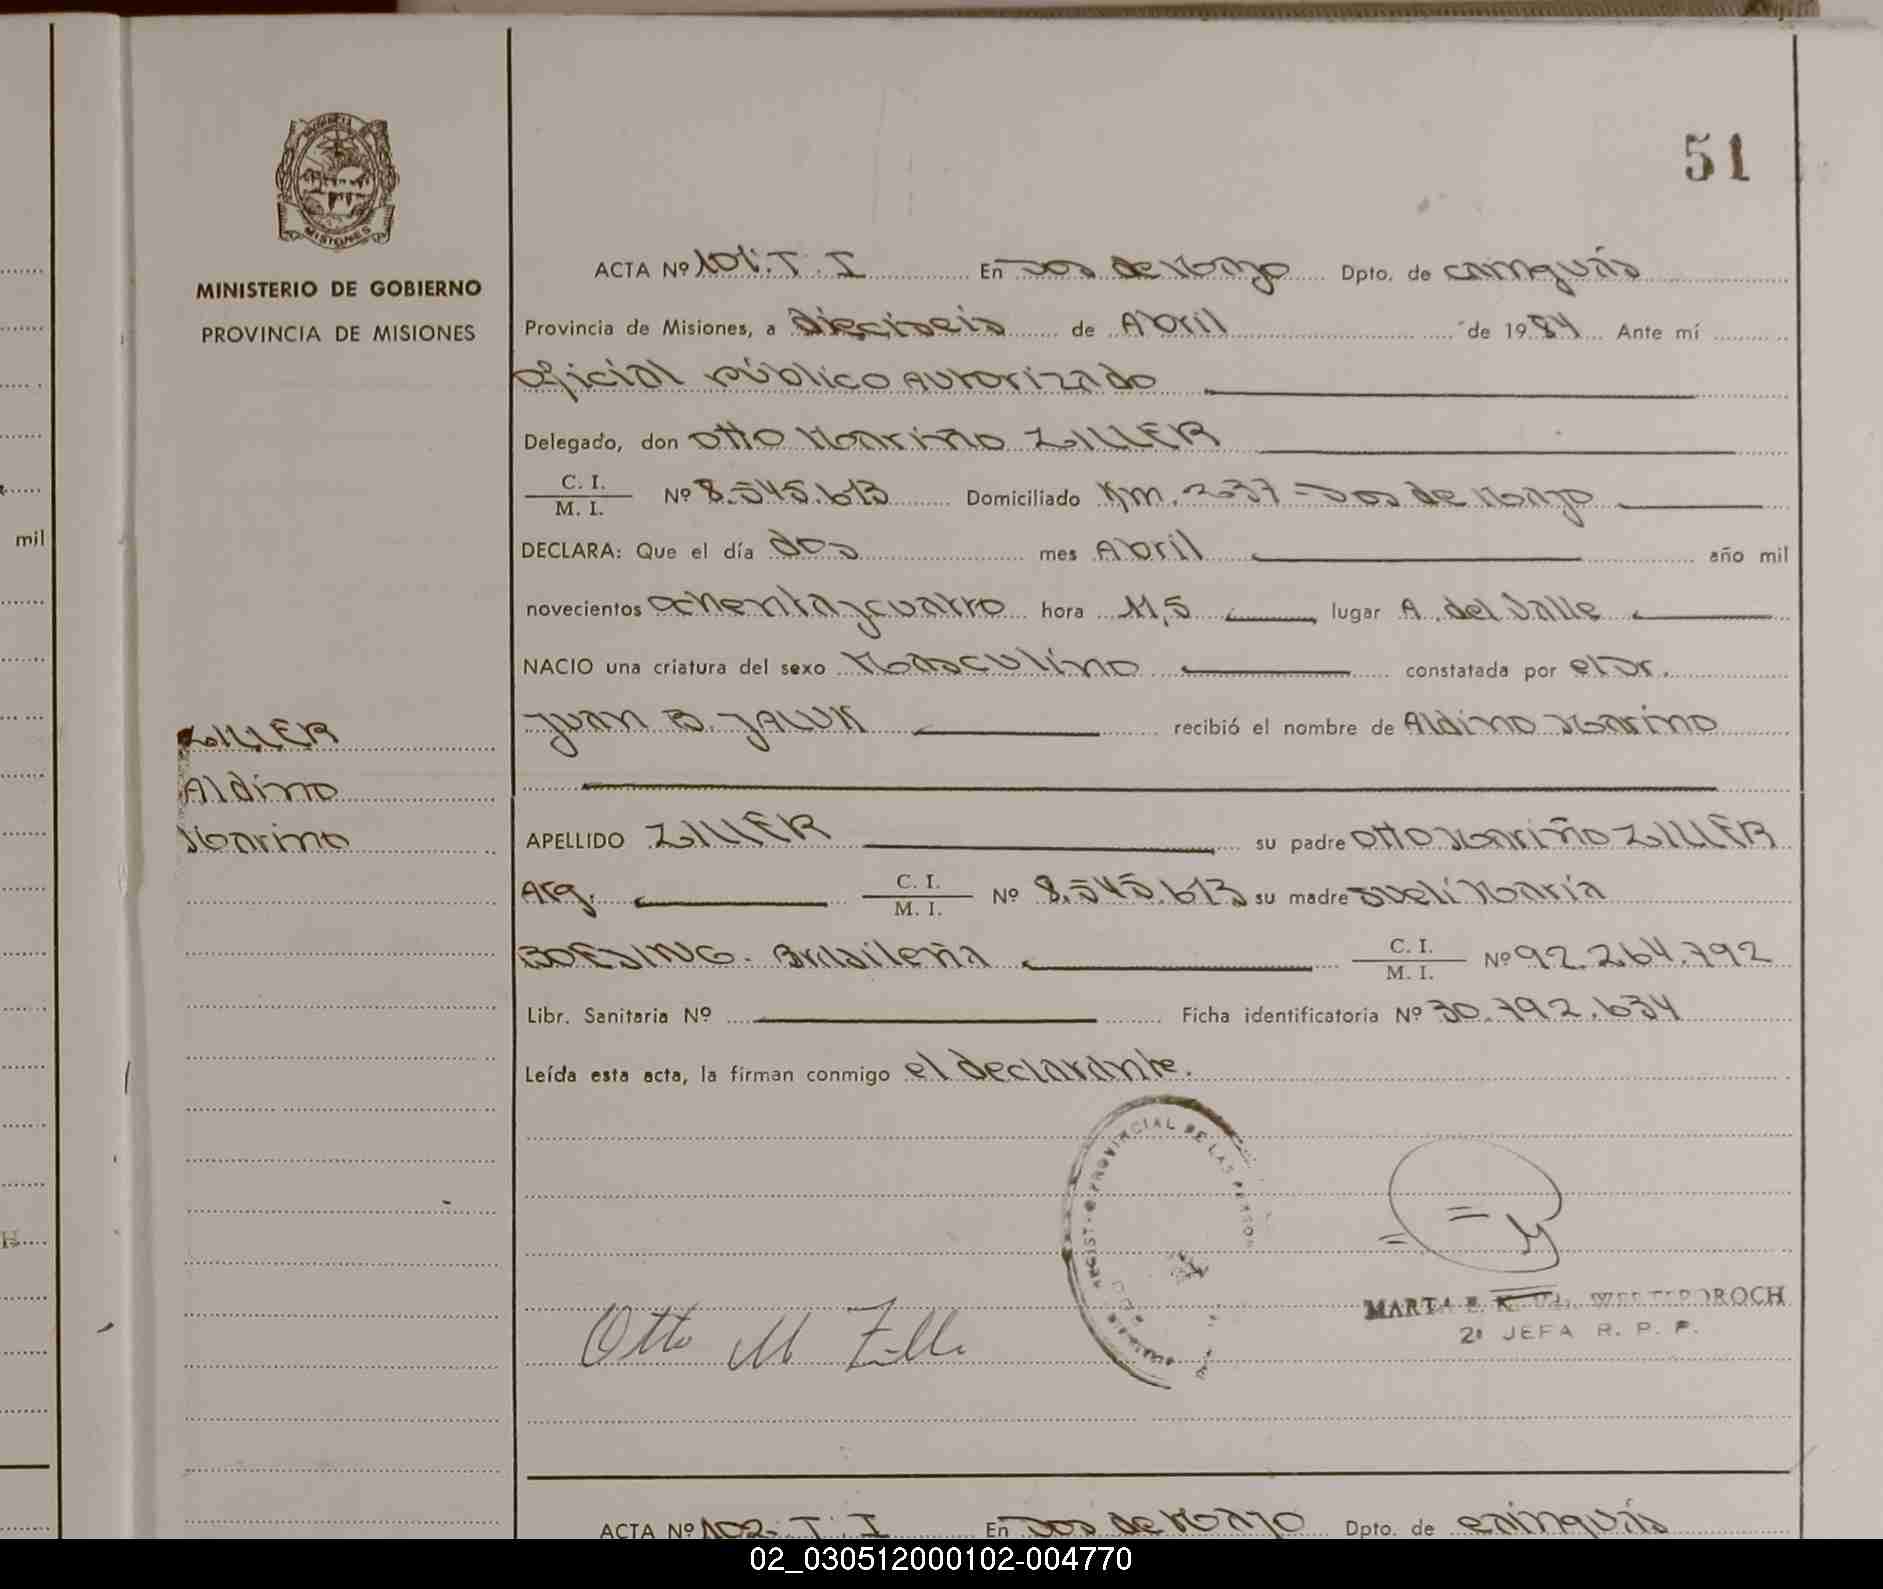 51
PROVINCIA
MISIONES
MINISTERIO DE GOBIERNO
PROVINCIA DE MISIONES
ZILLER
Aldino
Marino
ACTA Nº 101. T. I En Dos de Mayo Dpto. de cainguás
Provincia de Misiones, a dieciseis de Abril de 1984 Ante mí
oficial público autorizado
Delegado, don Otto Mariño ZILLER
C. I. / M. I. Nº 8.545.613 Domiciliado Km. 237 - Dos de Mayo
DECLARA: Que el día dos mes Abril año mil
novecientos ochenta y cuatro hora 11,5 lugar A. del Valle
NACIO una criatura del sexo Masculino constatada por el Dr.
Juan B. JALUK recibió el nombre de Aldino Marino
APELLIDO ZILLER su padre Otto Mariño ZILLER
Arg. C. I. / M. I. Nº 8.545.613 su madre Sueli María
BOESING. Brasileña C. I. / M. I. Nº 92.264.792
Libr. Sanitaria Nº Ficha identificatoria Nº 30.792.634
Leída esta acta, la firman conmigo el declarante.
PROVINCIAL DE LAS PERSON
Otto M Zille
MARTA E. K.
2ª JEFA R. P. P.
ACTA Nº 102. T. I En Dos de Mayo Dpto. de cainguás
mil
02_030512000102-004770